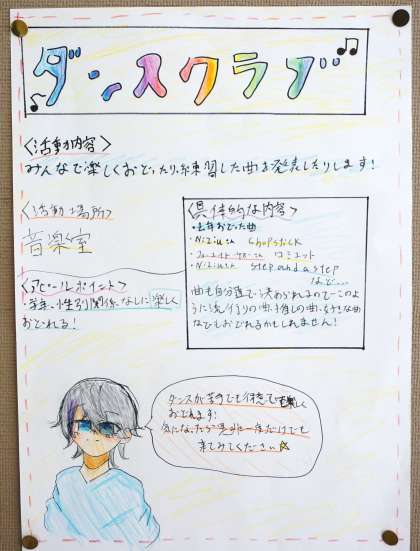 ダンスクラブ
<活動内容>
みんなで楽しくおどったり、練習した曲を発表したりします!
<活動場所>
音楽室
<アピールポイント>
学年、性別関係なしに楽しく
おどれる!
<具体的な内容>
・去年おどった曲
・NiziUさん chopstick
・さん ロミエット
・NiziUさん step and a step
など…
曲も自分達で決められるので このよ
うに流行りの曲、推しの曲、好きな曲
なでもおどれるかもしれません!
ダンスが苦手でも得意でも楽しく
おどれます!
気になったら是非一度だけでも
来てみてください☆